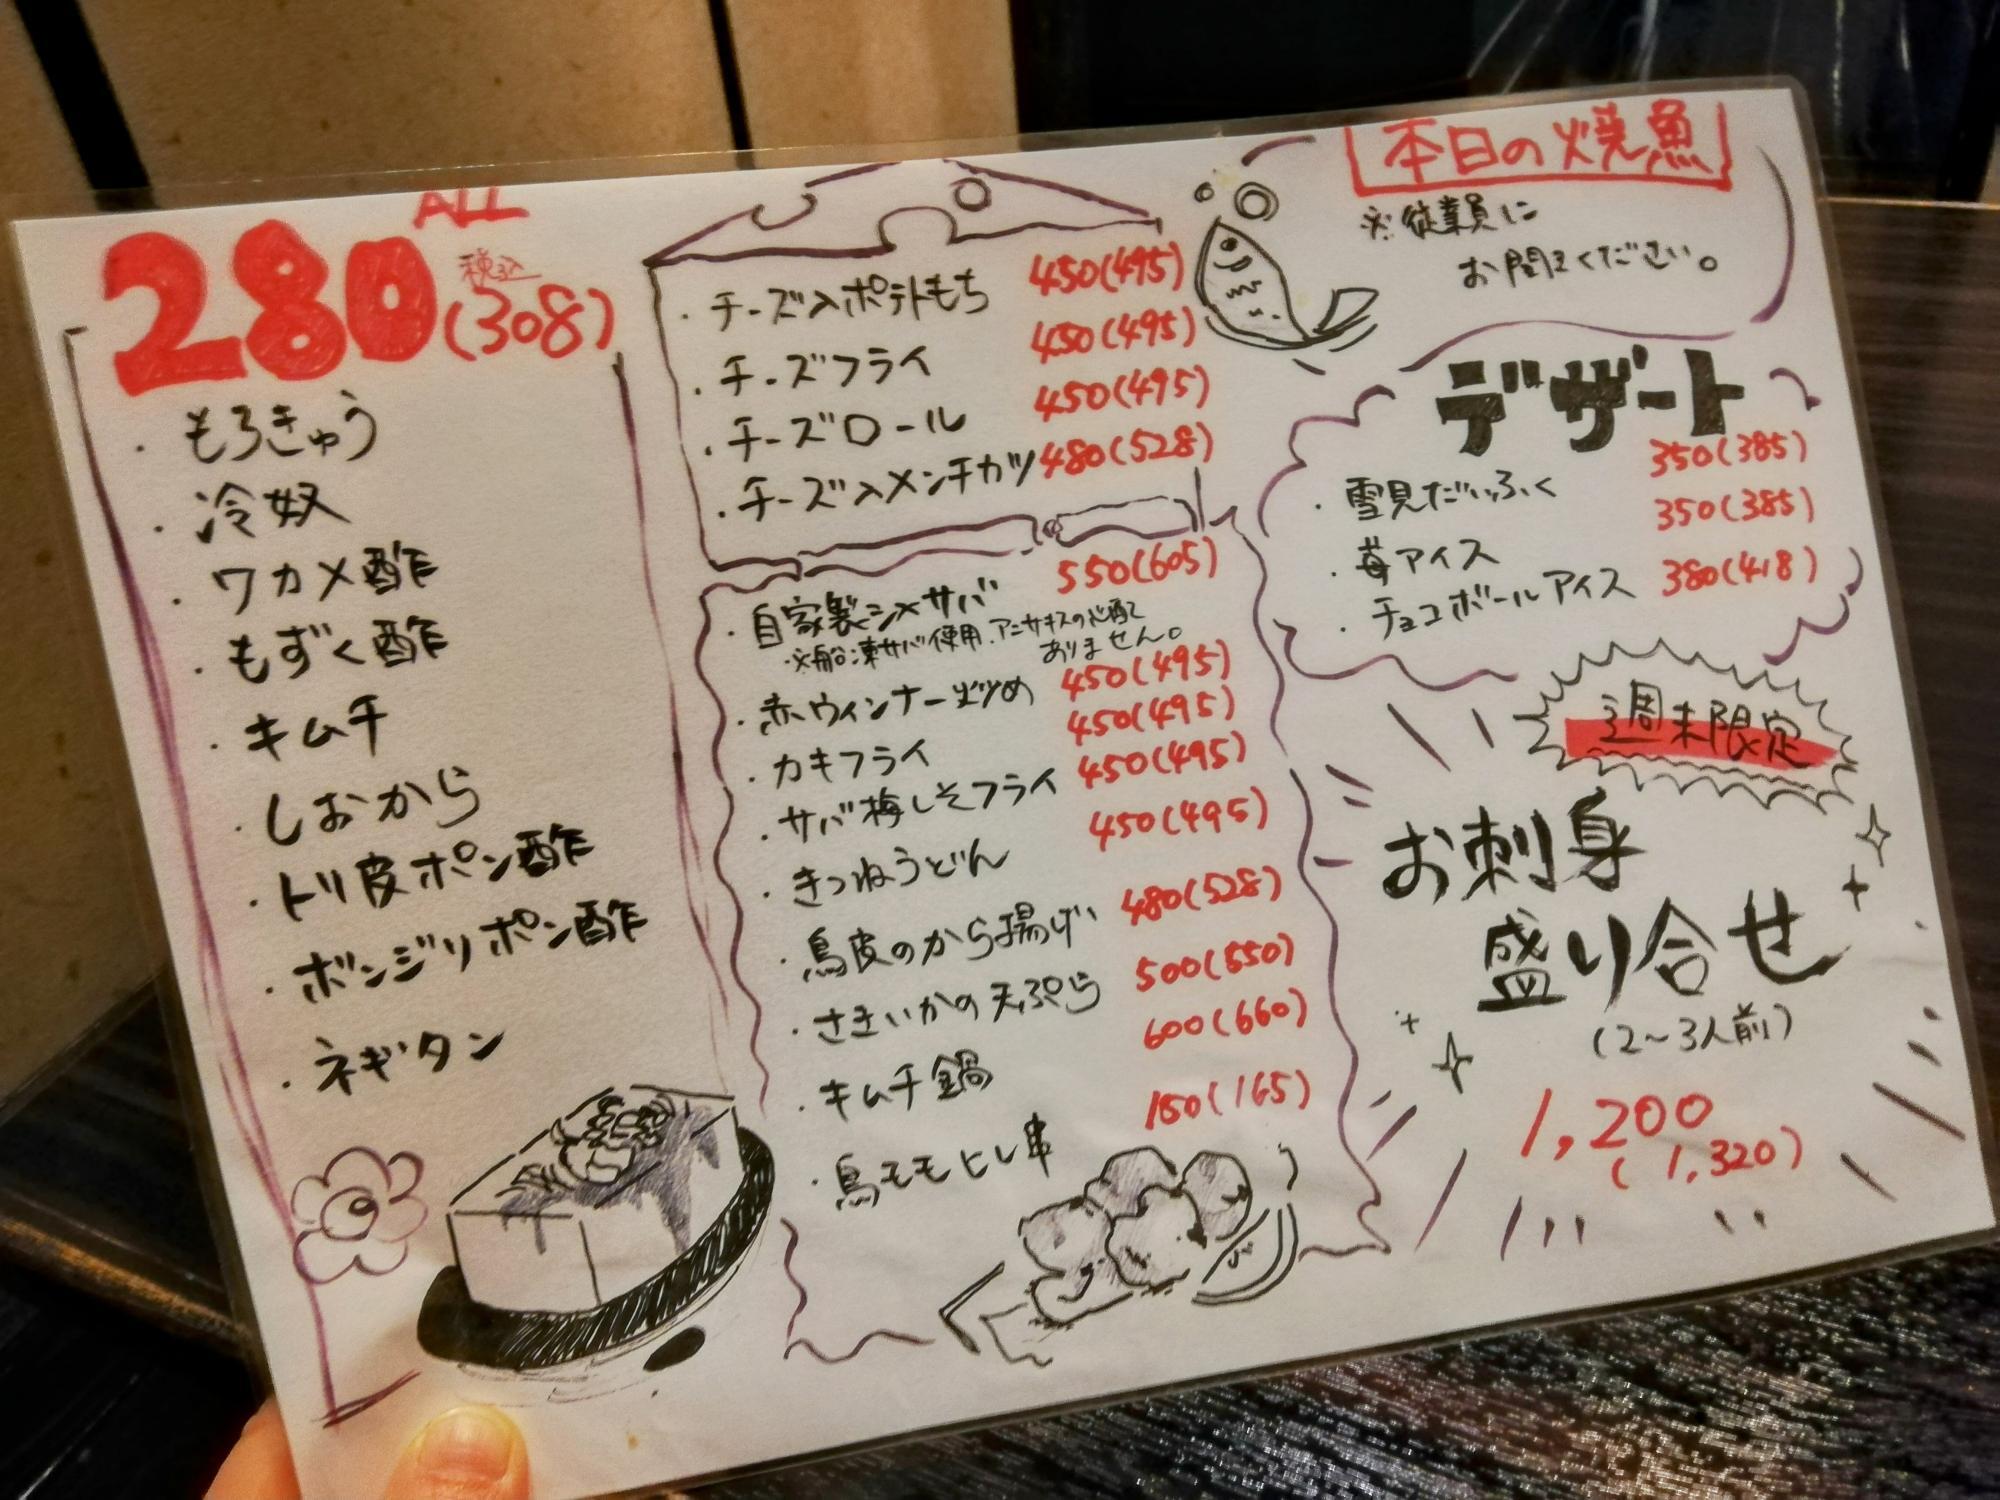 ALL
280
税込
(308)
・もろきゅう
・冷奴
・ワカメ酢
・もずく酢
・キムチ
・しおから
・トリ皮ポン酢
・ボンジリポン酢
・ネギタン
・チーズ入ポテトもち 450(495)
・チーズフライ 450(495)
・チーズロール 450(495)
・チーズ入メンチカツ 480(528)
・自家製シメサバ 550(605)
※船凍サバ使用.アニサキスの心配て
ありません。
・赤ウィンナー炒め 450(495)
・カキフライ 450(495)
・サバ梅しそフライ 450(495)
・きつねうどん 450(495)
・鳥皮のから揚げ 480(528)
・さきいかの天ぷら 500(550)
・キムチ鍋 600(660)
・鳥モモヒレ串 150(165)
本日の焼魚
※従業員に
お聞きください。
デザート
・雪見だいふく 350(385)
・苺アイス 350(385)
・チョコボールアイス 380(418)
週末限定
お刺身
盛り合せ
(2〜3人前)
1,200
(1,320)